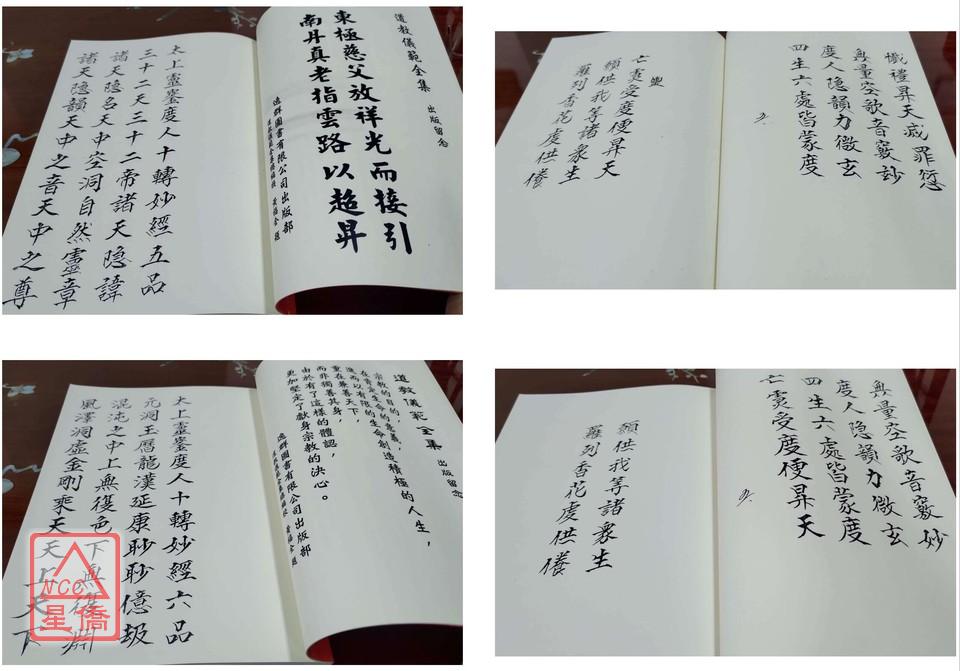 道教儀範全集 出版留念
東極慈父放祥光而接引
南丹真老指雲路以超昇
逸群圖書有限公司出版部
太上靈寶度人十轉妙經五品
三十二天三十二帝諸天隐諱
諸天隐名天中空洞自然靈章
諸天隐韻天中之音天中之尊
懺禮昇天滅罪愆
無量空歌音竅妙
度人隐韻力微玄
四生六處皆蒙度
亡霛受度便昇天
願供我等諸衆生
羅列香花虔供養
道教儀範全集 出版留念
宗教的目的、意義，
在肯定生命的意義，
進而以有限的生命創造積極的人生，
重在兼善天下，
而非獨善其身，
由於有了這樣的體認，
更加堅定了獻身宗教的決心。
逸群圖書有限公司出版部
太上靈寶度人十轉妙經六品
元洞玉曆龍漢延康眇眇億劫
混沌之中上無復色下無復淵
風澤洞虛金剛乘天天上天下
無量空歌音竅妙
度人隐韻力微玄
四生六處皆蒙度
亡霛受度便昇天
願供我等諸衆生
羅列香花虔供養
NCC
星僑